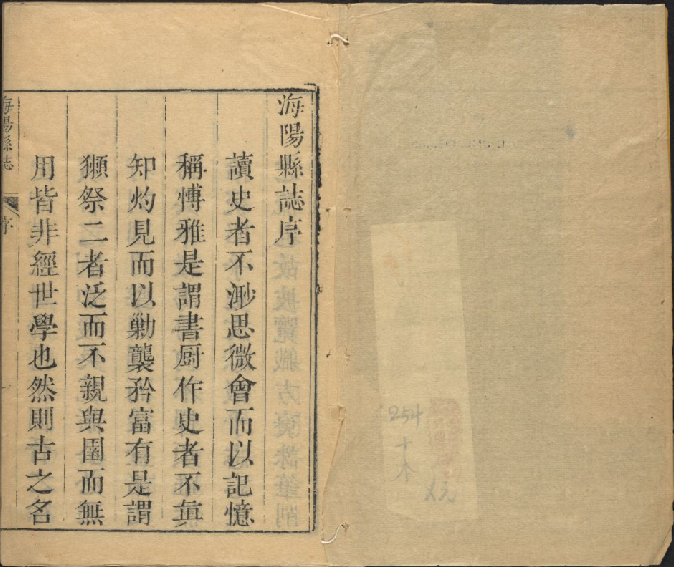 海陽縣誌序
讀史者不渺思微會而以記憶
稱愽雅是謂書厨作史者不真
知灼見而以勦襲矜富有是謂
獺祭二者泛而不親與圄而無
用皆非經世學也然則古之名
海陽縣誌
序
254
十本